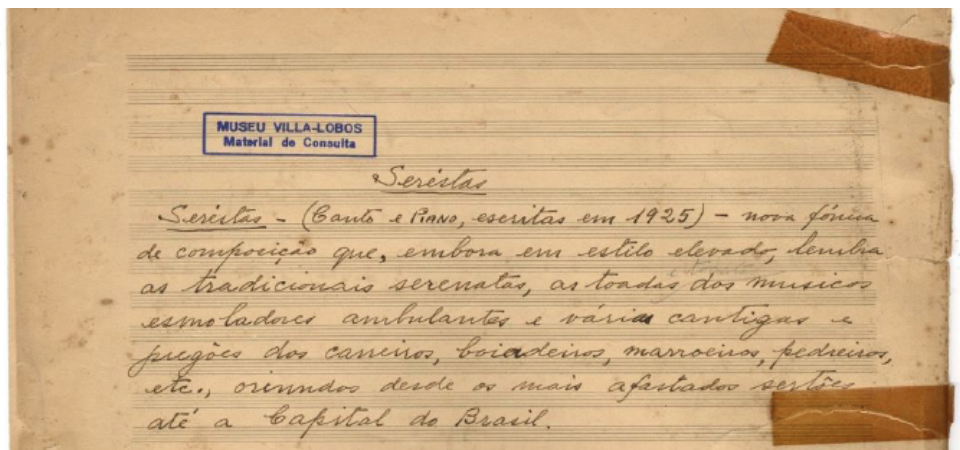 MUSEU VILLA-LOBOS
Material de Consulta
Seréstas
Seréstas - (Canto e PIANO, escritas em 1925) - nova fórma
de composição que, embora em estilo elevado, lembra
as tradicionais serenatas, as toadas dos musicos
esmoladores ambulantes e várias cantigas e
pregões dos carreiros, boiadeiros, marroeiros, pedreiros,
etc., oriundos desde os mais afastados sertões
até a Capital do Brasil.